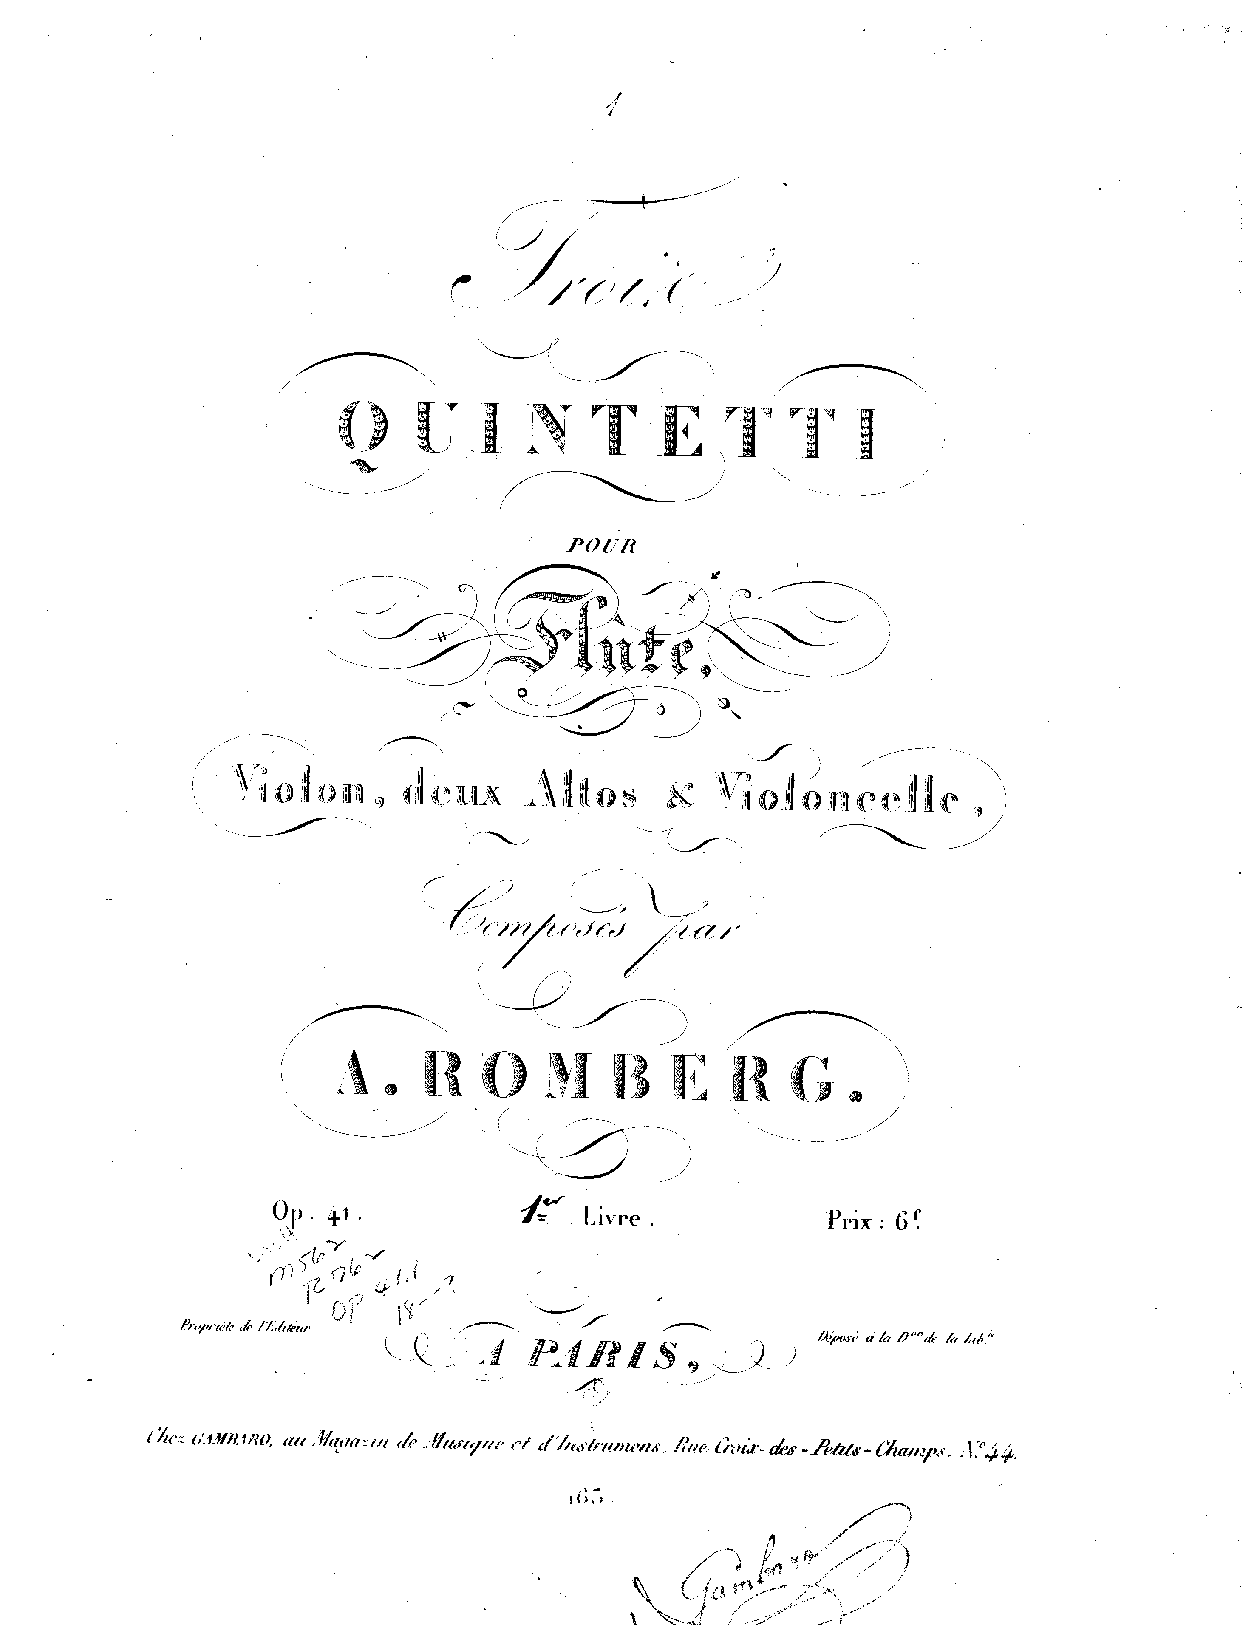 1
Troix
QUINTETTI
POUR
Flûte,
Violon, deux Altos & Violoncelle,
Composés par
A. ROMBERG.
Op. 41. 1.er Livre. Prix: 6.f
M562
R762
OP 41.1
18--?
Propriété de l'Editeur Déposé à la D.on de la Lib.ie
A PARIS,
Chez GAMBARO, au Magazin de Musique et d'Instrumens, Rue Croix-des-Petits-Champs, N.o 44.
163.
Gambaro